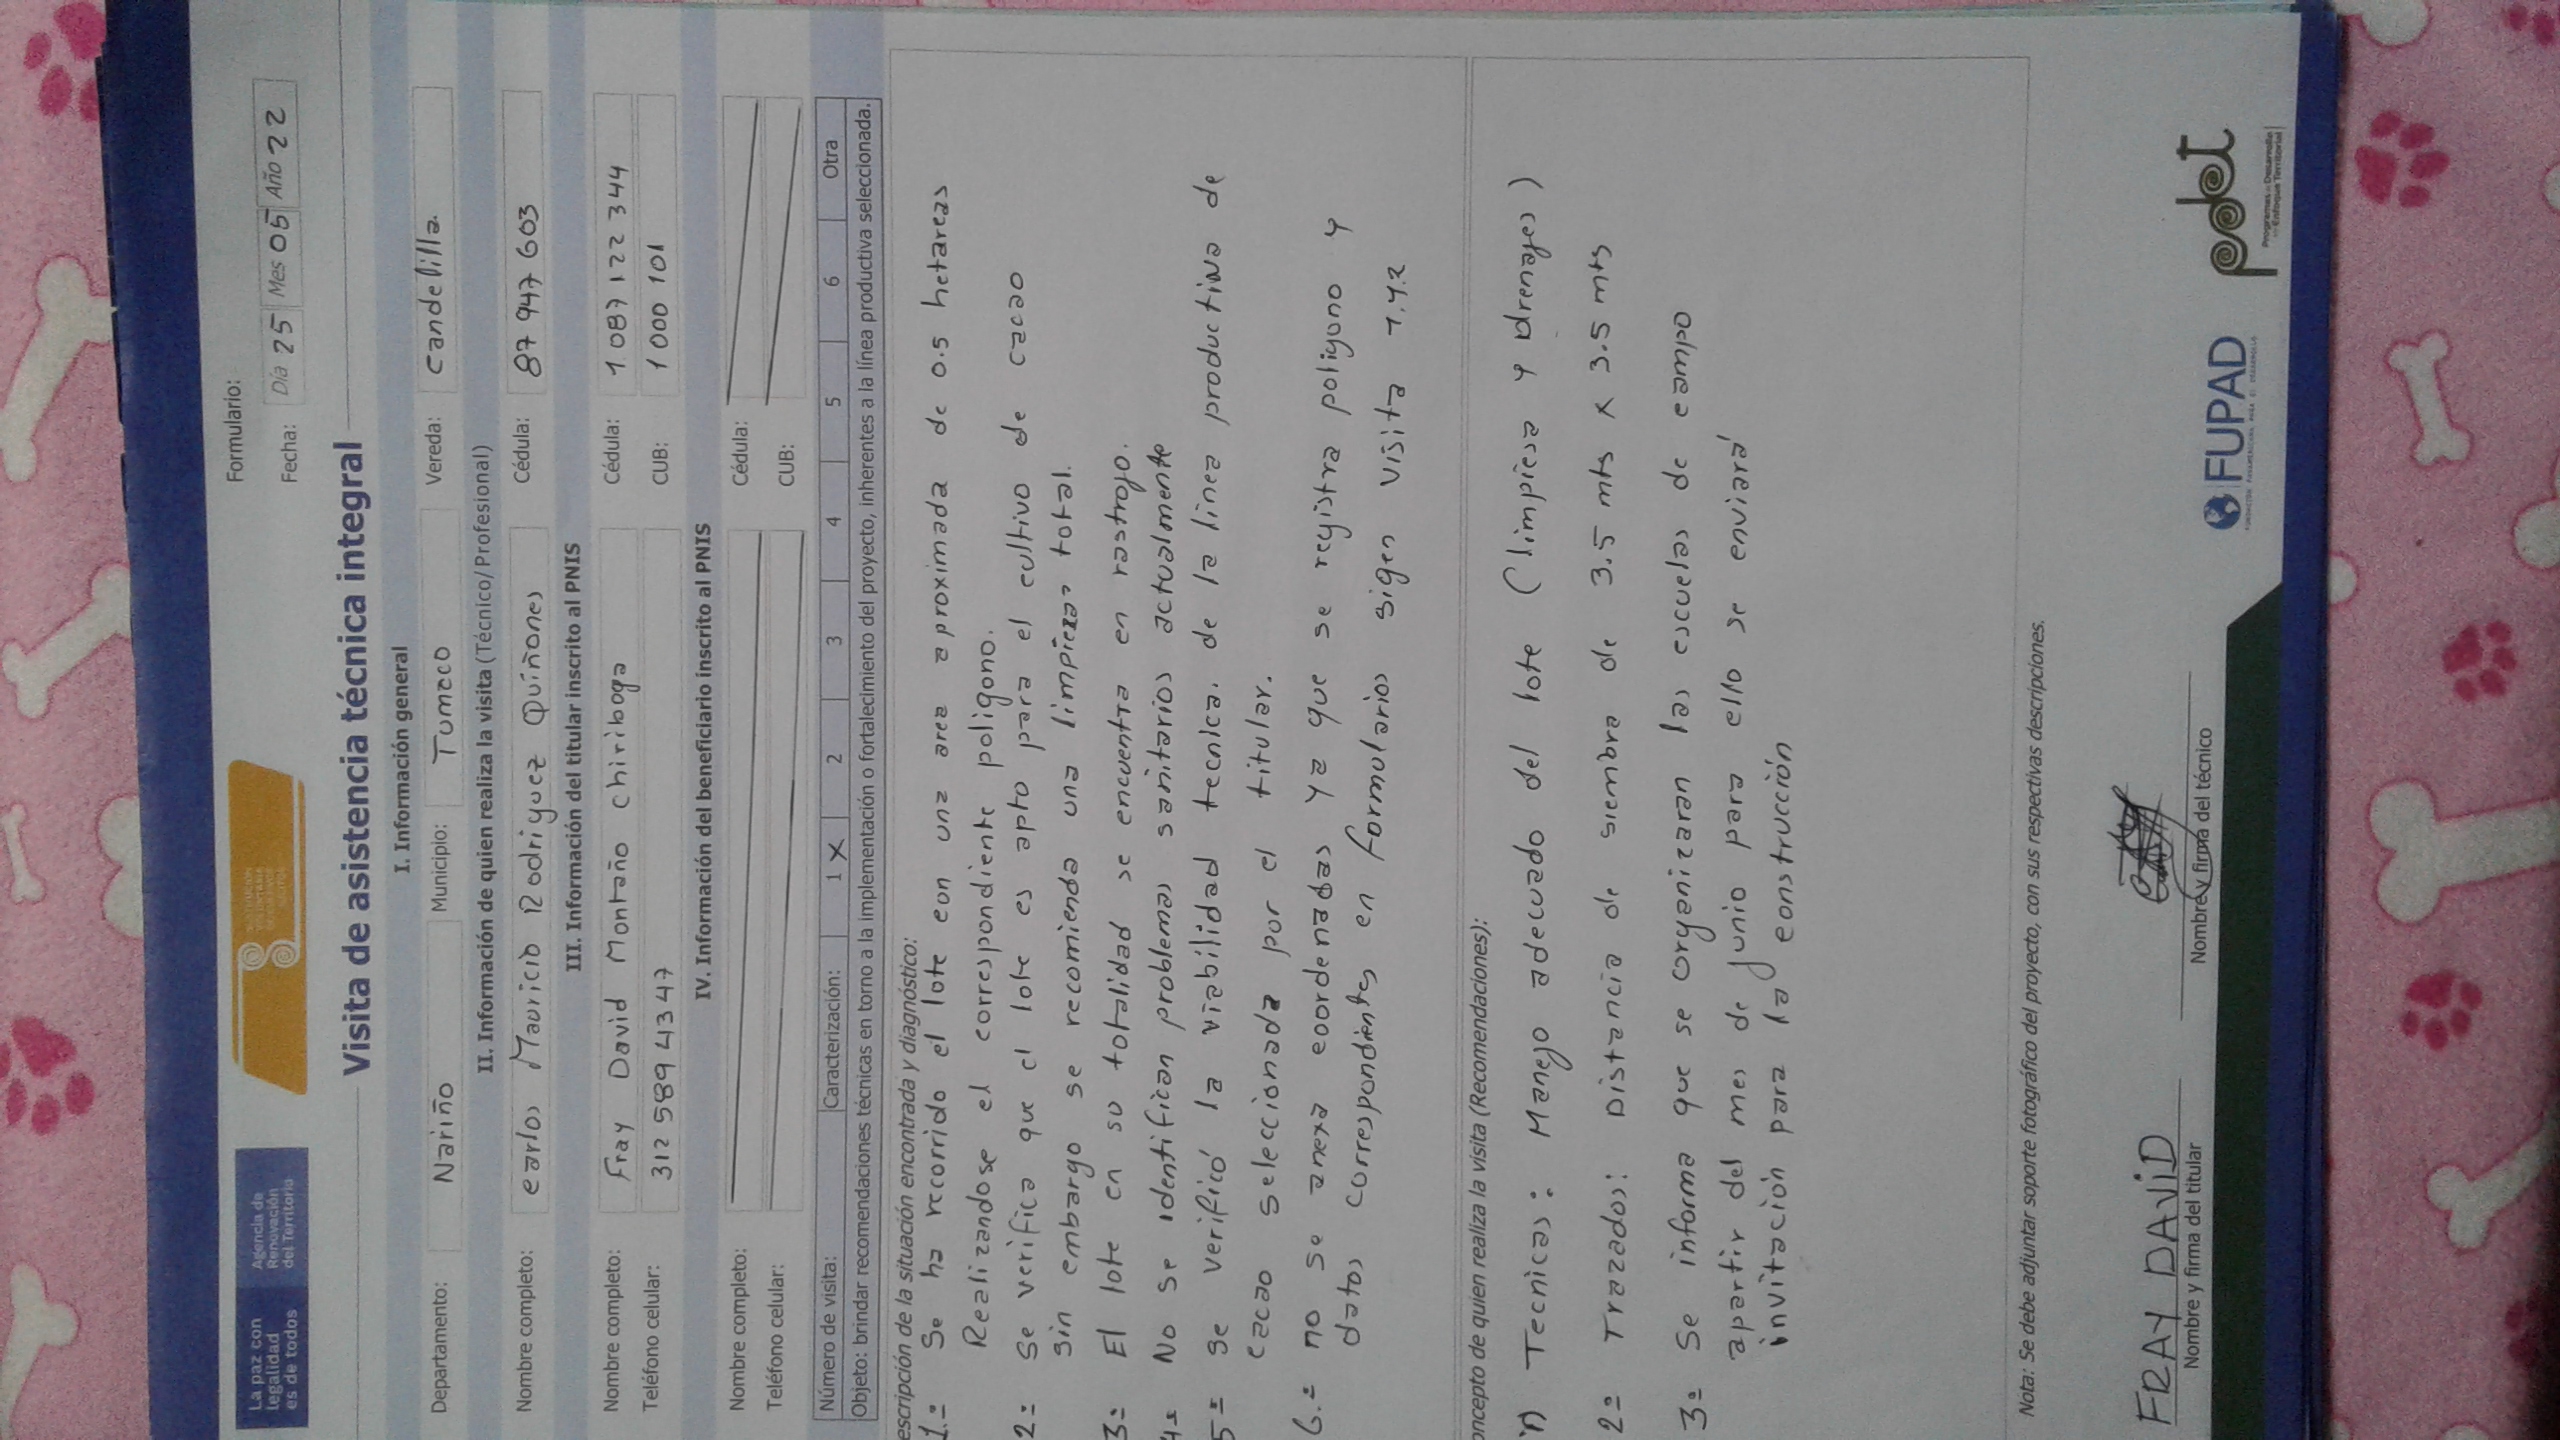 La paz con
legalidad
es de todos
Agencia de
Renovación
del Territorio
Formulario:
Fecha: Día 25 Mes 05 Año 22
Visita de asistencia técnica integral
I. Información general
Departamento: Nariño Municipio: Tumaco Vereda: candelilla.
II. Información de quien realiza la visita (Técnico/Profesional)
Nombre completo: carlos Mauricio Rodriguez Quiñones Cédula: 87 947 603
III. Información del titular inscrito al PNIS
Nombre completo: Fray David Montaño chiriboga Cédula: 1.087 122 344
Teléfono celular: 312 589 43 47 CUB: 1 000 101
IV. Información del beneficiario inscrito al PNIS
Nombre completo: Cédula:
Teléfono celular: CUB:
Número de visita: Caracterización: 1 X 2 3 4 5 6 Otra
Objeto: brindar recomendaciones técnicas en torno a la implementación o fortalecimiento del proyecto, inherentes a la línea productiva seleccionada.
escripción de la situación encontrada y diagnóstico:
1.= Se ha recorrido el lote con una area aproximada de 0.5 hetareas
Realizandose el correspondiente poligono.
2= se verifica que el lote es apto para el cultivo de cacao
sin embargo se recomienda una limpieza total.
3= El lote en su totalidad se encuentra en rastrojo.
4= No se identifican problemas sanitarios actualmente
5= se verificó la viabilidad tecnica. de la linea productiva de
cacao seleccionada por el titular.
6.= no se anexa coordenadas ya que se registra poligono y
datos correspondientes en formularios sigen visita 1.y.2
oncepto de quien realiza la visita (Recomendaciones):
1) Tecnicas: Manejo adecuado del lote (limpiesa y drenajes)
2= Trazados: Distancia de siembra de 3.5 mts x 3.5 mts
3= Se informa que se organizaran las escuelas de campo
apartir del mes de junio para ello se enviará
invitación para la construcción
Nota: Se debe adjuntar soporte fotográfico del proyecto, con sus respectivas descripciones.
FRAY DAViD
Nombre y firma del titular
Nombre y firma del técnico
FUPAD
pdet
Programas de Desarrollo
con Enfoque Territorial